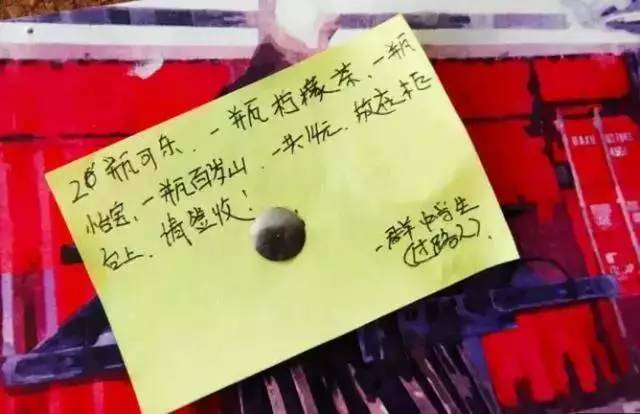 2瓶可乐、一瓶柠檬茶、一瓶
怡宝、一瓶百岁山，一共14元，放在柜
台上，请签收！
一群中学生
(过路人)